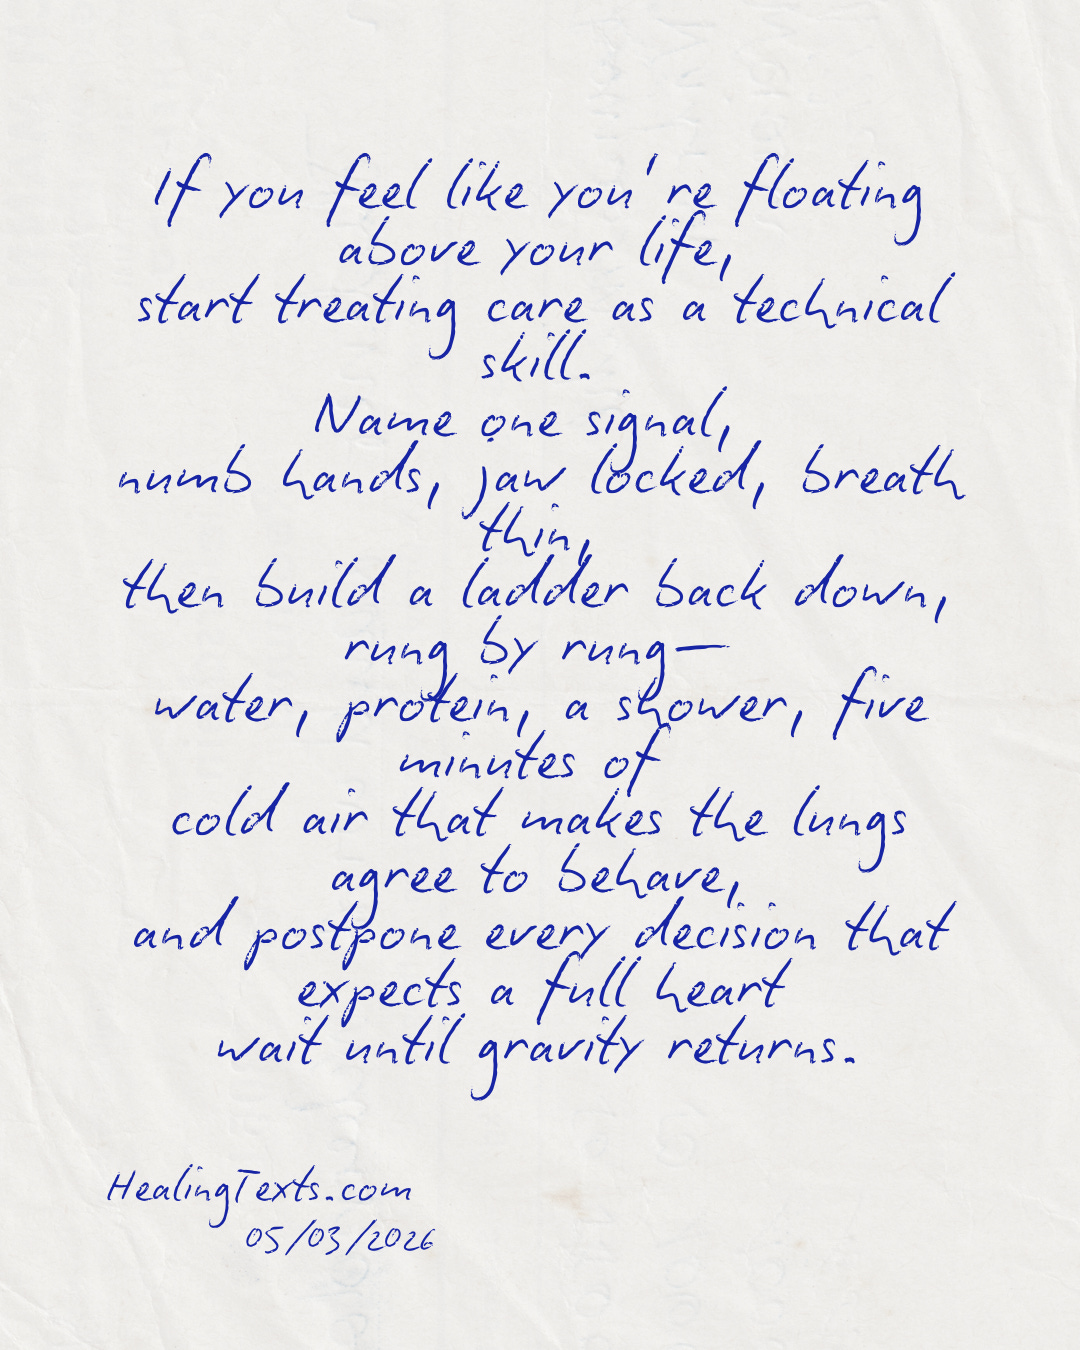 If you feel like you're floating
above your life,
start treating care as a technical
skill.
Name one signal,
numb hands, jaw locked, breath
thin,
then build a ladder back down,
rung by rung—
water, protein, a shower, five
minutes of
cold air that makes the lungs
agree to behave,
and postpone every decision that
expects a full heart
wait until gravity returns.
HealingTexts.com
05/03/2026